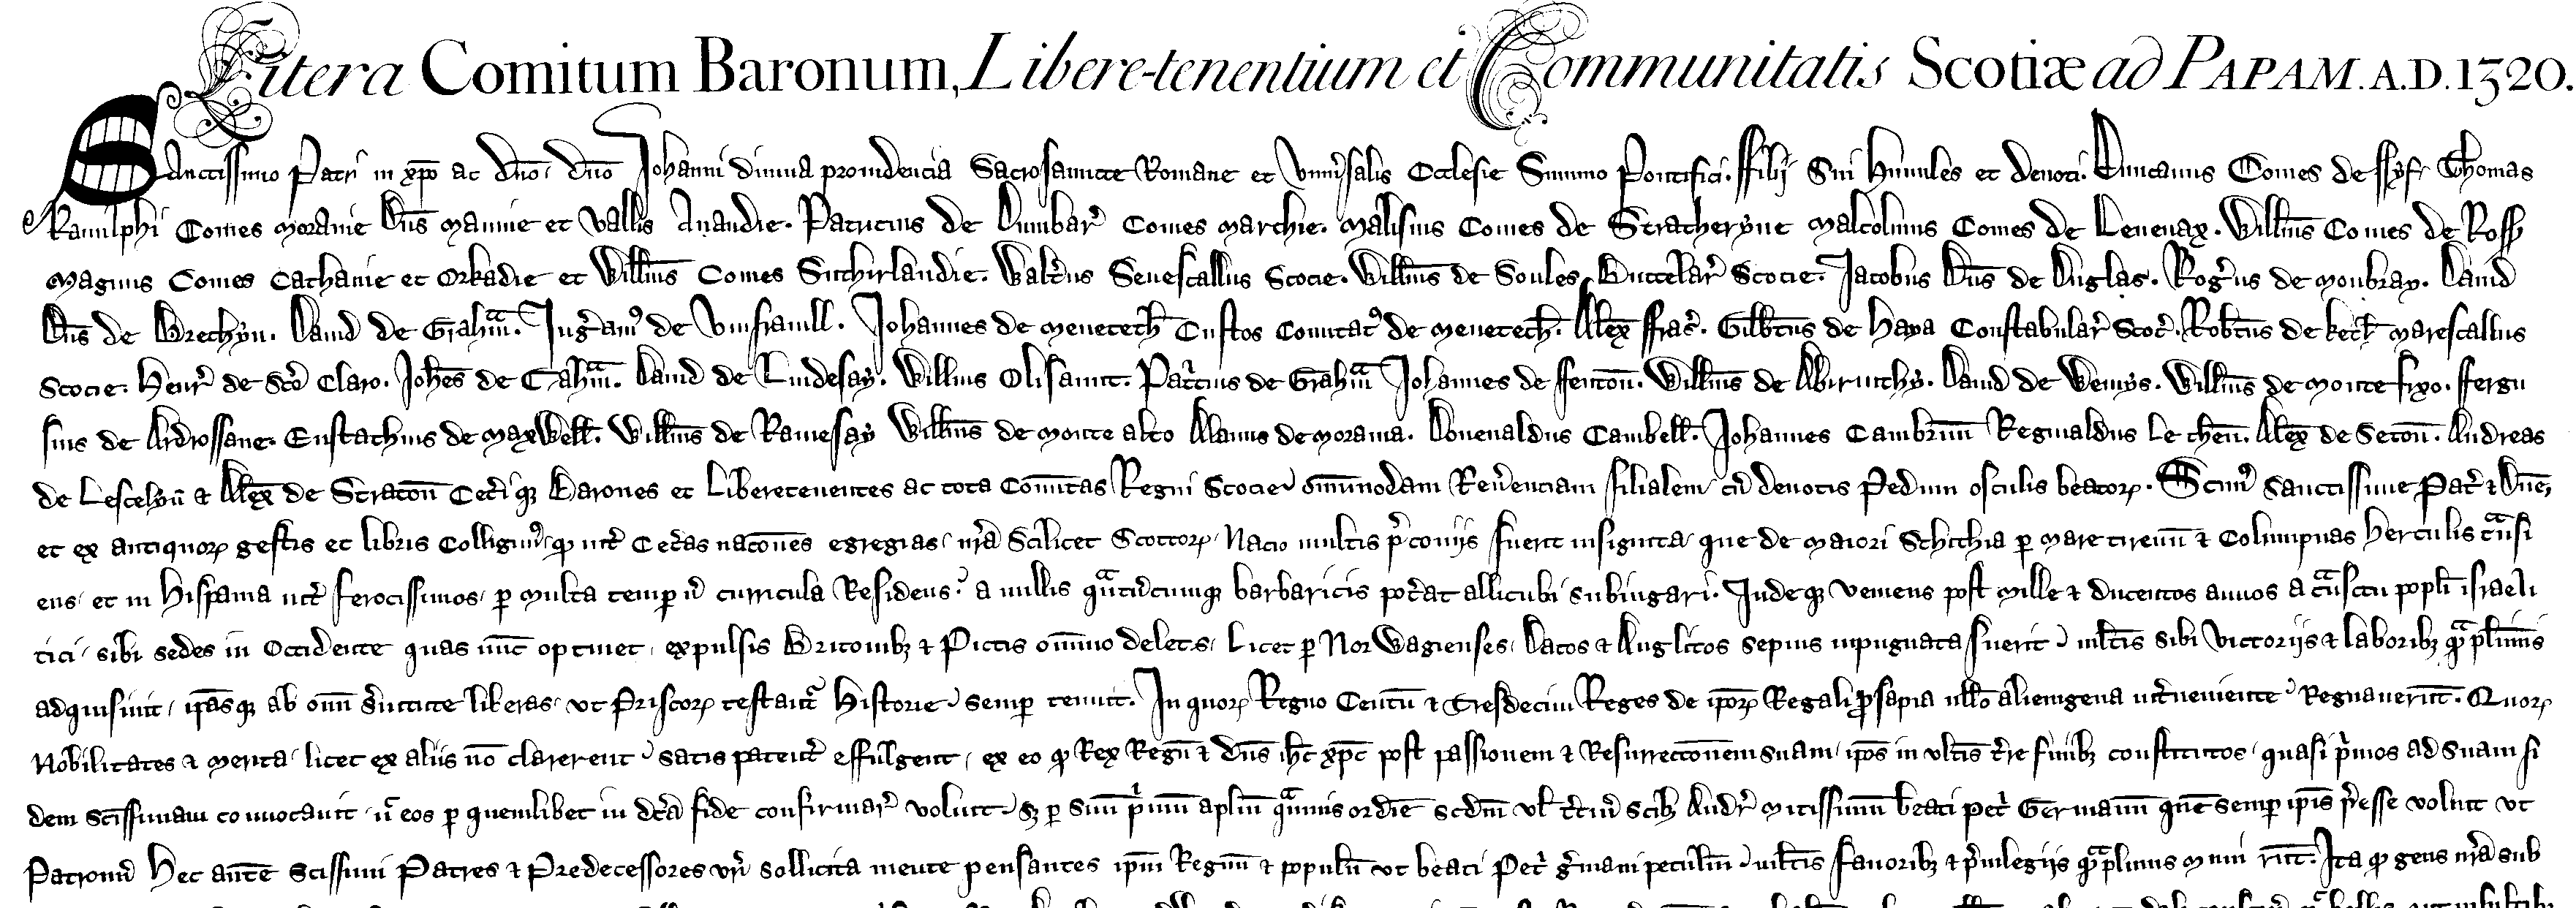 Litera Comitum Baronum, Libere-tenentium et Communitatis Scotiæ ad PAPAM. A.D. 1320.
Sanctissimo Patri in xpō ac dn̄o, dn̄o Johanni diuina prouidencia Sacrosauncte Romane et Vniu̓salis Ecclesie Summo Pontifici. Filij Sui Humiles et deuoti. Duncanus Comes de ffyf, Thomas
Ranulphi Comes Morauie Dn̄s Mannie et Vallis Anandie. Patricius de Dumbar̓ Comes Marchie. Malisius Comes de Stratheryne Malcolmus Comes de Leuenax. Willm̄s Comes de Ross
Magnus Comes Cathanie et Orkadie et Willm̄s Comes Suthirlandie. Walt̓us Senescallus Scocie. Willm̄s de Soules, Buttelar̓ Scocie. Jacobus Dn̄s de Duglas. Rog̓us de Moubray. Dauid
Dn̄s de Brechyn. Dauid de Grahm̄. Ing̓amꝰ de Vmfrauill. Johannes de Meneteth̄ Custos Comitatꝰ de Meneteth̄. Alex̄ ffras̓. Gilbt̄us de Haya Constabular̓ Scoc̓. Robt̄us de Keth̄ Marescallus
Scocie. Henr̓ de Sc̄o Claro. Joh̄es de Grahm̄. Dauid de Lindesay. Willm̄s Olifaunt. Pat̓cius de Grahm̄ Johannes de ffentou̅. Willm̄s de Abirnithy. Dauid de Wemys. Willm̄s de Monte fixo. ffergu
sius de Ardrossane. Eustachius de Maxwell̄. Willm̄s de Ramesay Willm̄s de Monte alto Alanus de Morauia. Douenaldus Cambell̄. Johannes Cambrun̄ Reginaldus Le chen̄. Alex̄ de Setou̅. Andreas
de Lescelyn̄ & Alex̄ de Stratou̅ Cet̓iqꝫ Barones et Liberetenentes ac tota Com̄itas Regni Scocie om̄imodam Reu̓enciam filialem cū deuotis Pedum osculis beatoꝝ. Scimꝰ Sanctissime Pat̓ & Dn̄e,
et ex antiquoꝝ gestis et libris Colligimꝰ, qꝫ int̓ Cet̓as nac̄ones egregias, nr̄a Scilicet Scottoꝝ Nacio multis p̓conijs fuerit insignita, que de Maiori Schithia ꝑ Mare tirenū & Columpnas Herculis t̄nsi
ens, et in Hispania int̓ ferocissimos, ꝑ multa tempoꝝ curricula Residens, a nullis qn̄tūcumqꝫ barbaricis pot̓at allicubi subiugari. Indeqꝫ Veniens post mille & ducentos annos a t̄nsitu popl̄i israeli
tici, sibi sedes in Occidente quas nūc optinet, expulsis Britonibꝫ & Pictis om̄ino deletis, Licet ꝑ Norwagienses, Dacos & Anglicos sepius inpugnata fuerit, ml̄tis sibi Victorijs & laboribꝫ qm̄plīmis
adquisiuit, ip̄asqꝫ ab om̄i s̓uitute liberas, vt Priscoꝝ testant̓ Historie, semper tenuit. In quoꝝ Regno Centū & Tresdecim Reges de ip̄oꝝ Regali ꝓsapia, nullo alienigena int̓ueniente, Regnauerūt. Quoꝝ
Nobilitates & Merita, licet ex aliis nō clarerent, satis patent̓ effulgent, ex eo qꝫ Rex Regū & dn̄s ih̄c xp̄c post passionem & Resurrecc̄onem suam, ip̄os in vlt̄is t̓re finibꝫ constitutos, quasi p̓mos ad Suam fi
dem sc̄issimam conuocauit, n̄ eos ꝑ quemlibet in dc̄a fide confirmar̓ voluit, sꝫ ꝑ Suū p̓mū aplm̄ quāuis ordīe scdm̄ vl̄ t̓ciū, scilꝫ Andr̓ mitissimū beati pet̓ Germanū quē semper ip̄is p̓esse voluit vt
Patronū Hec autē Sc̄issimi Patres & Predecessores vr̄i sollicita mente pensantes ip̄m Regnū & popl̄m vt beati Pet̓ g̓mani peculiū, ml̄tis fauoribꝫ & p̓uilegijs qm̄plīmis Muni rūt. Ita qꝫ gens nr̄a sub